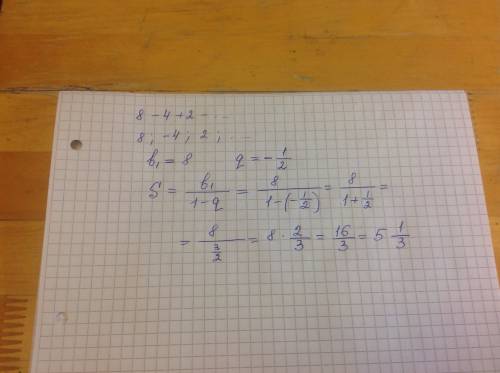 8 - 4 + 2 - ...
8 ; -4 ; 2 ; ...
b₁ = 8 q = -1/2
S = b₁/(1-q) = 8/(1-(-1/2)) = 8/(1+1/2) =
= 8/(3/2) = 8 · 2/3 = 16/3 = 5 1/3